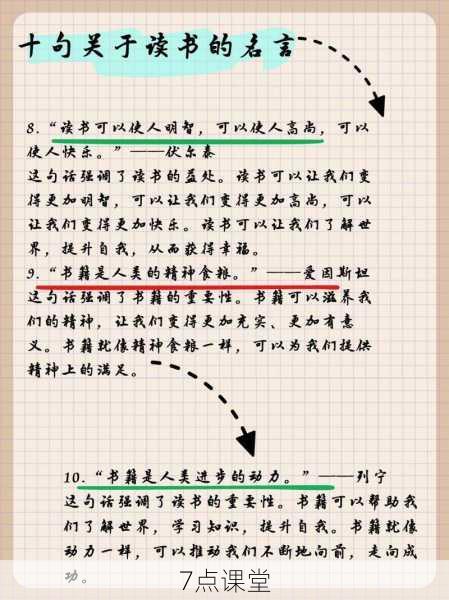 十句关于读书的名言
8.“读书可以使人明智，可以使人高尚，可以
使人快乐。”——伏尔泰
这句话强调了读书的益处。读书可以让我们变
得更加明智，可以让我们变得更加高尚，可以
让我们变得更加快乐。读书可以让我们了解世
界，提升自我，从而获得幸福。
9.“书籍是人类的精神食粮。”——爱因斯坦
这句话强调了书籍的重要性。书籍可以滋养我
们的精神，让我们变得更加充实、更加有意
义。书籍就像精神食粮一样，可以为我们提供
精神上的满足。
10.“书籍是人类进步的动力。”——列宁
这句话强调了读书的重要性。书籍可以帮助我
们了解世界，学习知识，提升自我。书籍就像
动力一样，可以推动我们不断地向前，走向成
功。
7点课堂